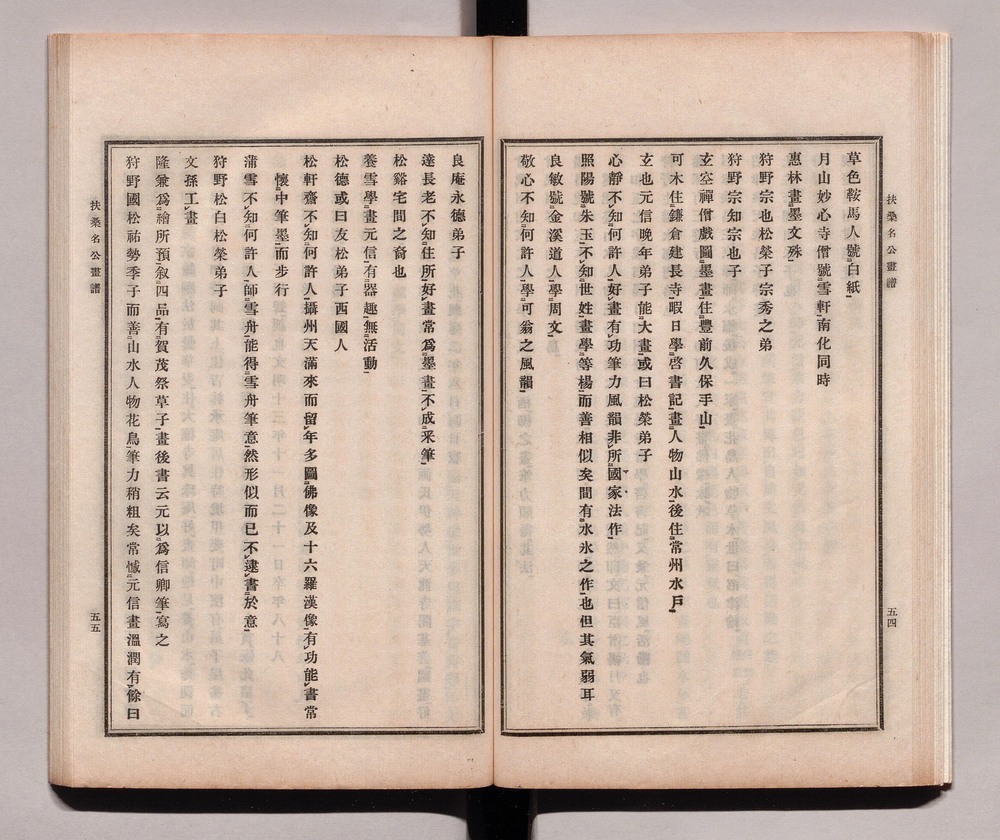 扶桑名公畫譜
五四
草色鞍馬人號白紙
月山妙心寺僧號雪軒南化同時
惠林畫墨文殊
狩野宗也松榮子宗秀之弟
狩野宗知宗也子
玄空禪僧戲圖墨畫住豐前久保手山
可木住鎌倉建長寺暇日學啓書記畫人物山水後住常州水戶
玄也元信晚年弟子能大畫或曰松榮弟子
心靜不知何許人好畫有功筆力風韻非所國家法作
照陽號朱玉不知世姓畫學等楊而善相似矣間有水氷之作也但其氣弱耳
良敏號金溪道人學周文
敬心不知何許人學可翁之風韻
良庵永德弟子
達長老不知住所好畫常爲墨畫不成釆筆
松谿宅間之裔也
養雪學畫元信有器趣無活動
松德或曰友松弟子西國人
松軒齋不知何許人攝州天滿來而留年多圖佛像及十六羅漢像有功能書常
懷中筆墨而步行
蒲雪不知何許人師雪舟能得雪舟筆意然形似而已不逮書於意
狩野松白松榮弟子
文孫工畫
隆兼爲繪所預叙四品有賀茂祭草子畫後書云元以爲信卿筆寫之
狩野國松祐勢季子而善山水人物花鳥筆力稍粗矣常憾元信畫溫潤有餘曰
扶桑名公畫譜
五五